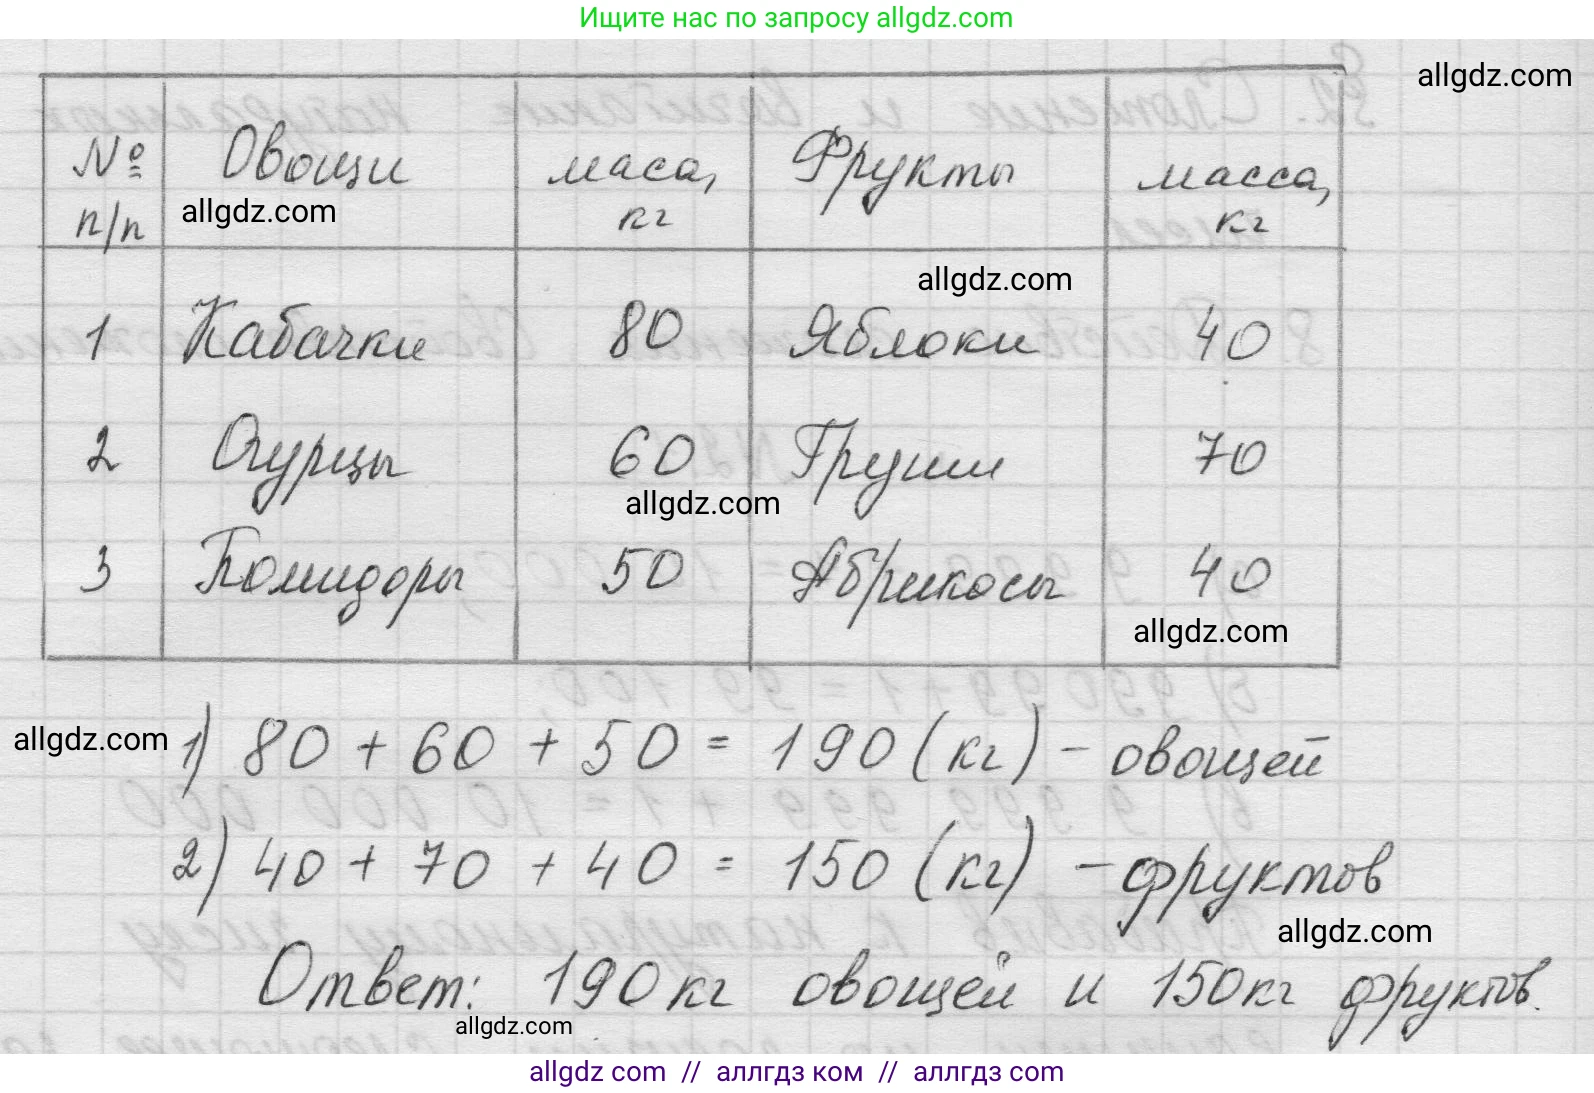 Ищите нас по запросу allgdz.com
allgdz.com
№ п/п Овощи маса, кг Фрукты масса, кг
allgdz.com
allgdz.com
1 Кабачки 80 Яблоки 40
2 Огурцы 60 Груши 70
allgdz.com
3 Помидоры 50 Абрикосы 40
allgdz.com
allgdz.com
1) 80 + 60 + 50 = 190 (кг) - овощей
2) 40 + 70 + 40 = 150 (кг) - фруктов
allgdz.com
Ответ: 190 кг овощей и 150 кг фруктов.
allgdz.com
allgdz com // аллгдз ком // аллгтз com